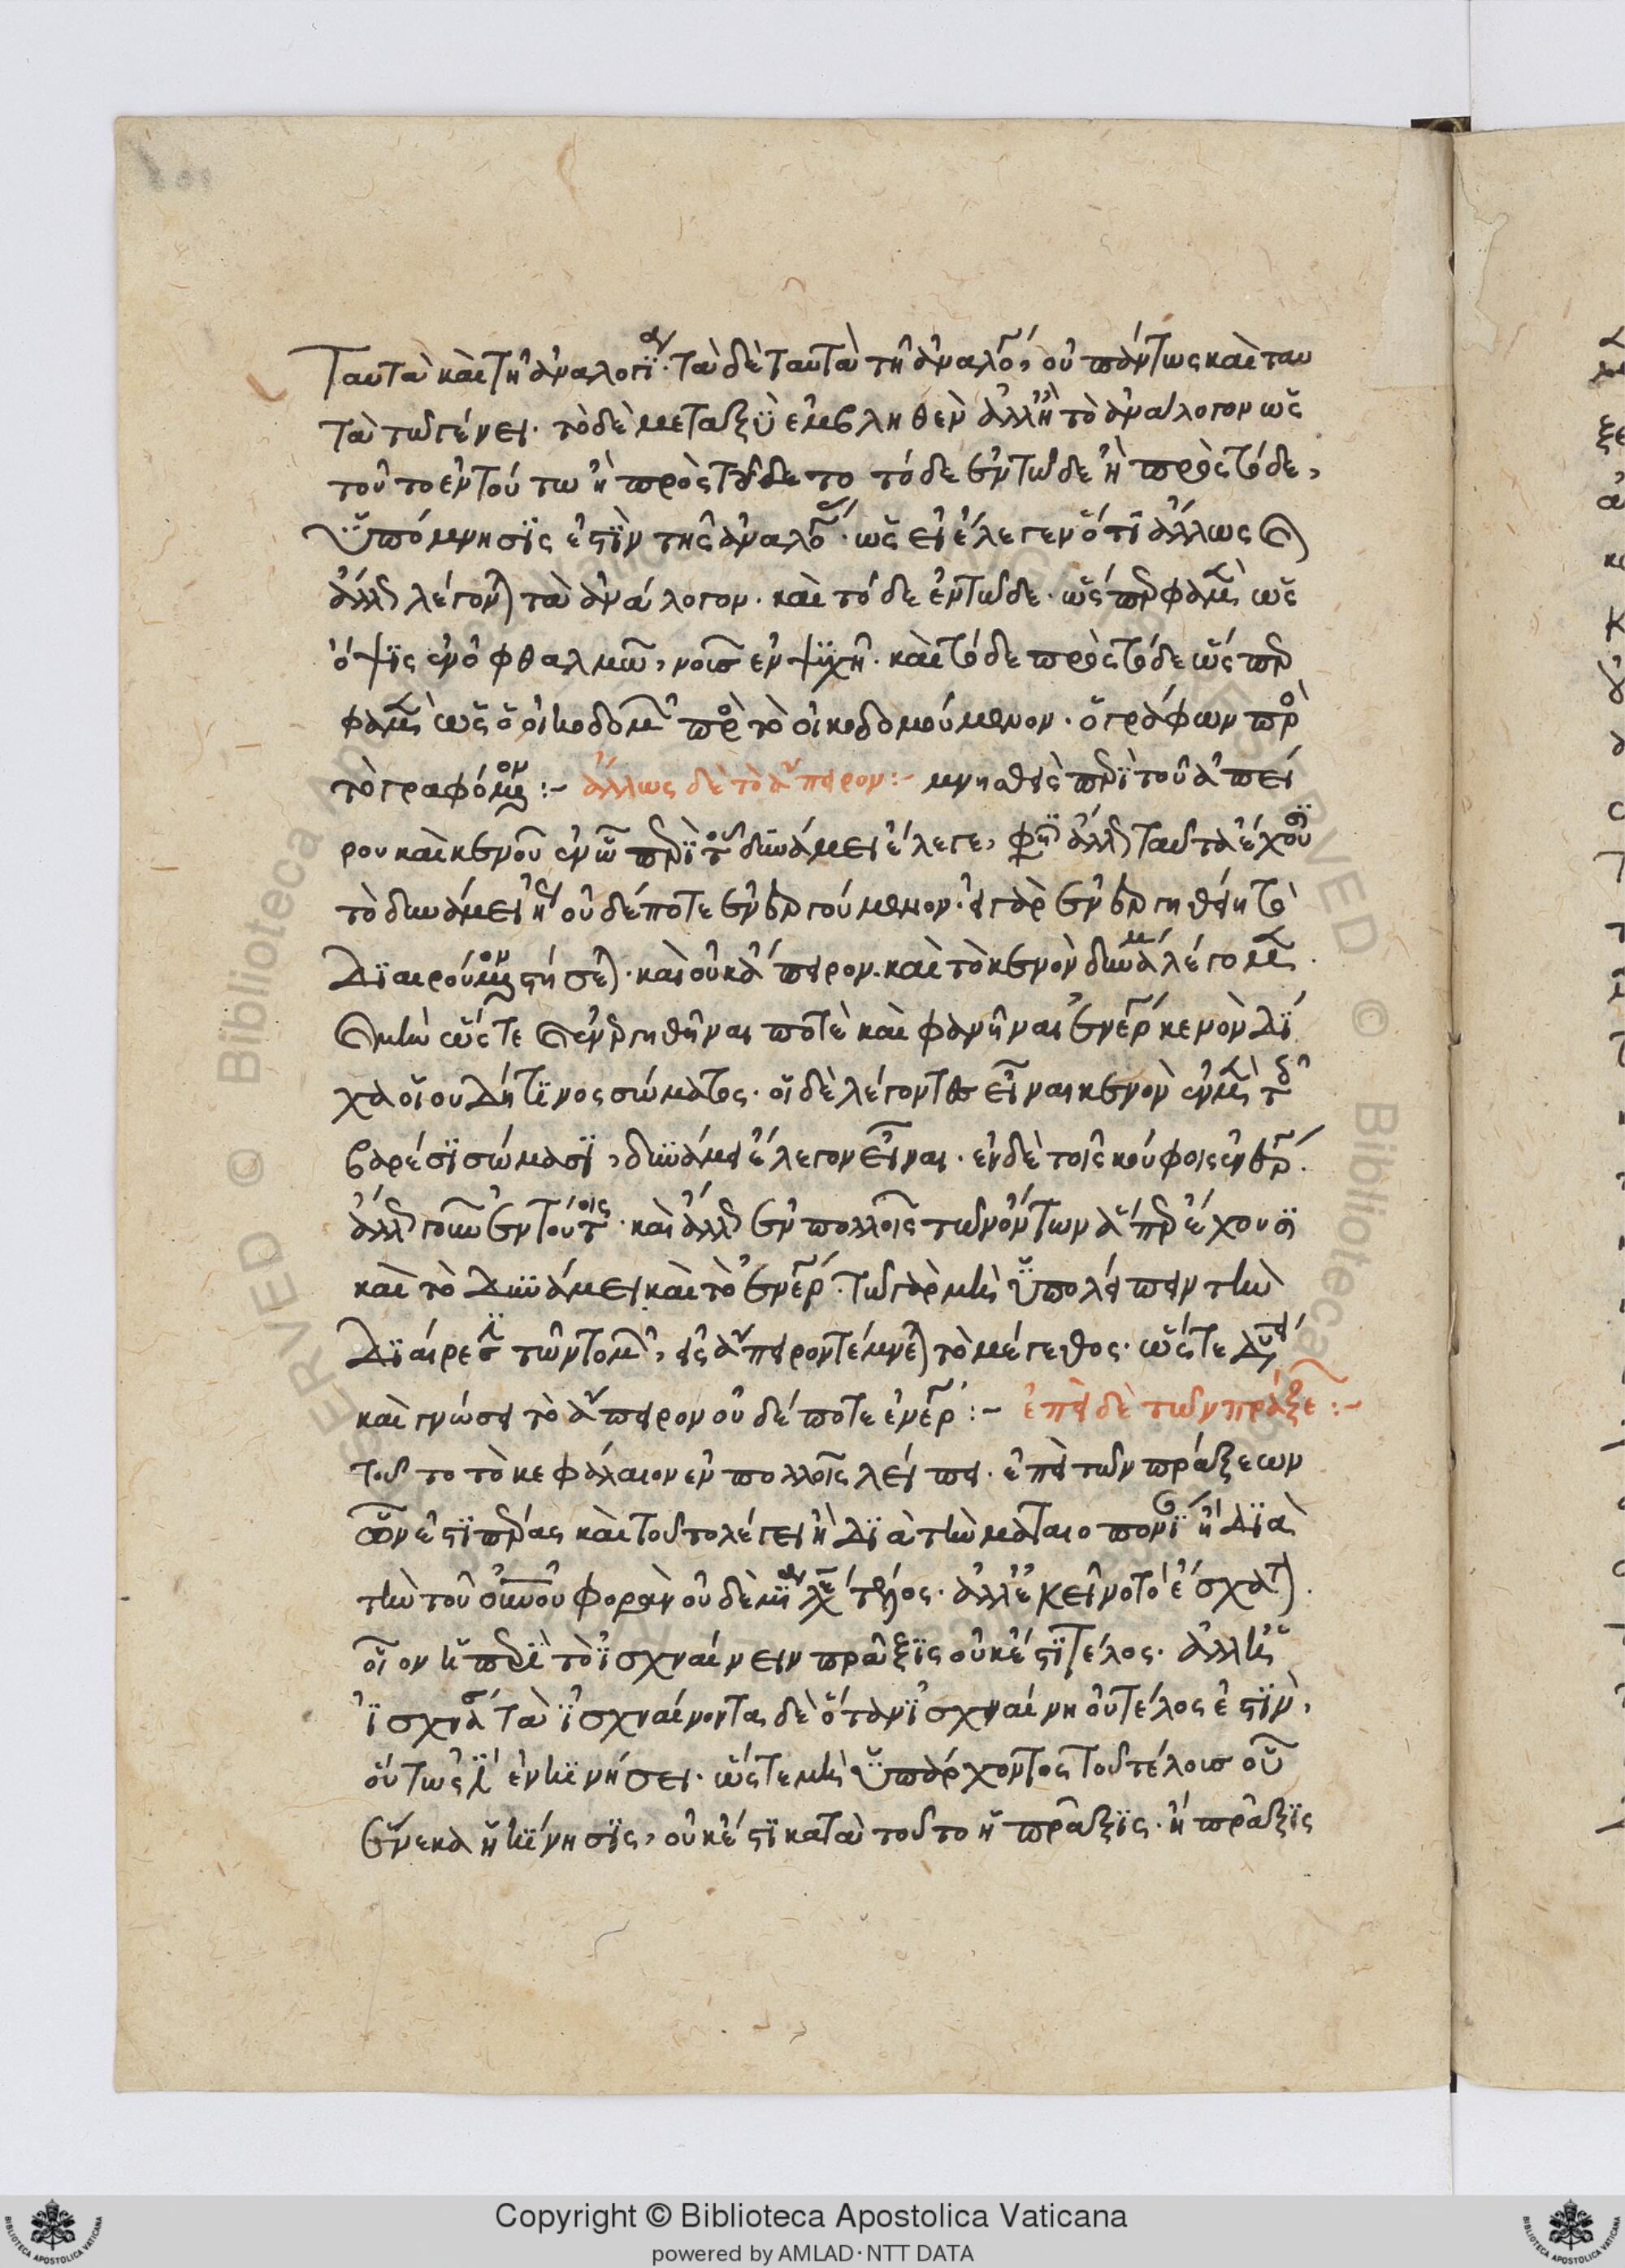 Ταυτὰ καὶ τῆ ἀναλογί αν. τὰ δὲ ταυτὰ τῆ ἀναλο, οὐ πάντως καὶ ταυ
τὰ τῶ γένει. τὸ δὲ μεταξὺ ἐμβληθὲν ἀλλ' ἢ τὸ ἀνάλογον ὡς
τοῦτο ἐν τούτω ἢ πρὸς τοῦτο τόδε ἐν τῶδε ἢ πρὸς τόδε,
ὑπόμνησϊς ἐστὶν τῆς ἀναλο. ὡς εἰ ἔλεγεν ὅτι ἄλλως
λέγον τὰ ἀνάλογον. καὶ τόδε ἐν τῶδε. ὥσπερ φαμὲν ὡς
ὄψϊς ἐν ὀφθαλμῶ, νοῦς ἐν ψϋχῆ. καὶ τόδε πρὸς τόδε ὥσπερ
φαμὲν ὡς ὁ οἰκοδομ πρὸς τὸ οἰκοδομούμενον. ὁ γράφων πρὸς
τὸ γραφόμενον :- ἄλλως δὲ τὸ ἄπειρον :- μνησθεὶς περὶ τοῦ ἀπεί
ρου καὶ κενοῦ ἐν ὧ περὶ τοῦ δυνάμει ἔλεγε, φησὶν ταῦτα ἔχουσι
τὸ δυνάμει οὐδέποτε ἐνεργούμενον. εἰ γὰρ ἐνεργηθείη τὸ
Δϊαιρούμενον στήσε. καὶ οὐκ ἄπειρον. καὶ τὸ κενὸν δυνάμ λέγομεν.
ὥστε ἐνεργηθῆναι ποτὲ καὶ φανῆναι ἐνερ κενὸν δί
χα οἵου δή τϊνος σώματος. οἱ δὲ λέγοντες εἶναι κενὸν ἐν μὲν τ
βαρέσϊ σώμασϊ, δυνάμει ἔλεγον εἶναι. ἐν δὲ τοῖς κούφοις ἐνερ.
ἄλλ γοῦν ἐν τούτοις. καὶ ἄλλ ἐν πολλοῖς τῶν ὄντων ἅπερ ἔχουσϊ
καὶ τὸ Δυνάμει καὶ τὸ ἐνερ. τῶ γὰρ μὴ ὑπολείπειν τὴν
Δϊαίρεσϊν τῶν τομ, εἰς ἄπειρον τέμνε τὸ μέγεθος. ὥστε
καὶ γνώσει τὸ ἄπειρον οὐδέποτε ἐνερ :- ἐπεὶ δὲ τῶν πράξε :-
τοῦτο τὸ κεφάλαιον ἐν πολλοῖς λείπει. ἐπεὶ τῶν πράξεων
ὧν ἐστϊ πέρας καὶ τοῦτο λέγει ἢ Δϊὰ τὴν ματαιοπονί ἢ Δϊὰ
τὴν τοῦ φορὰν οὐδεμί τέλος. ἀλλ' ἐκεῖνο τὸ ἔσχατ.
οἷον ἡ περὶ τὸ ϊσχναίνειν πρᾶξϊς οὐκ ἔστϊ τέλος. ἀλλ' ἡ
ϊσχνασ. τὰ ϊσχναίνοντα δὲ ὅταν ϊσχναίνη οὐ τέλος ἐστϊν,
οὕτως ἐν κϊνήσει. ὥστε μὴ ὑπάρχοντος τοῦ τέλους οὗ
ἕνεκα ἡ κίνησϊς, οὐκ ἔστϊ κατὰ τοῦτο ἡ πρᾶξϊς. ἡ πρᾶξϊς
Copyright © Biblioteca Apostolica Vaticana
powered by AMLAD·NTT DATA